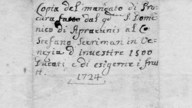 Copia del mandato di Pro
cura fatto dal q. P. Domi
nico di Apracunis al
Stefano Scariman in Ve
nezia d'investire 1500
Ducati e di esigerne i frut
ti 1724